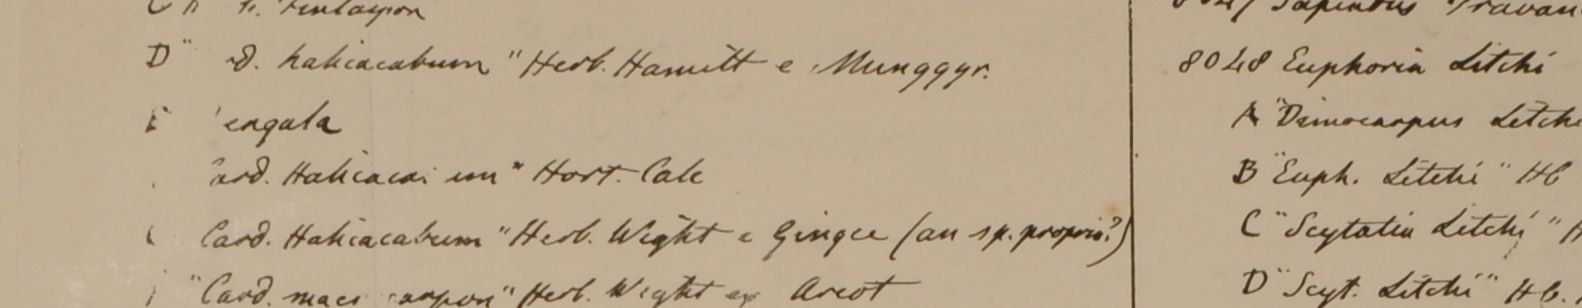 Finlayson
D" d. halicacabum" Herb. Hamilt e Mungger.
E engala
ard. Halicaca um" Hort. Calc
Card. Halicacabum" Herb. Wight e Gingee (an sp. propria?)
"Card. mac carpon" Herb. Wight ex Arcot
8047 Sapindus Travan
8048 Euphoria Litchi
A "Dimocarpus Litchi
B "Euph. Litchi" HC
C "Scytalia Litchi" H
D "Scyt. Litchi" HC.